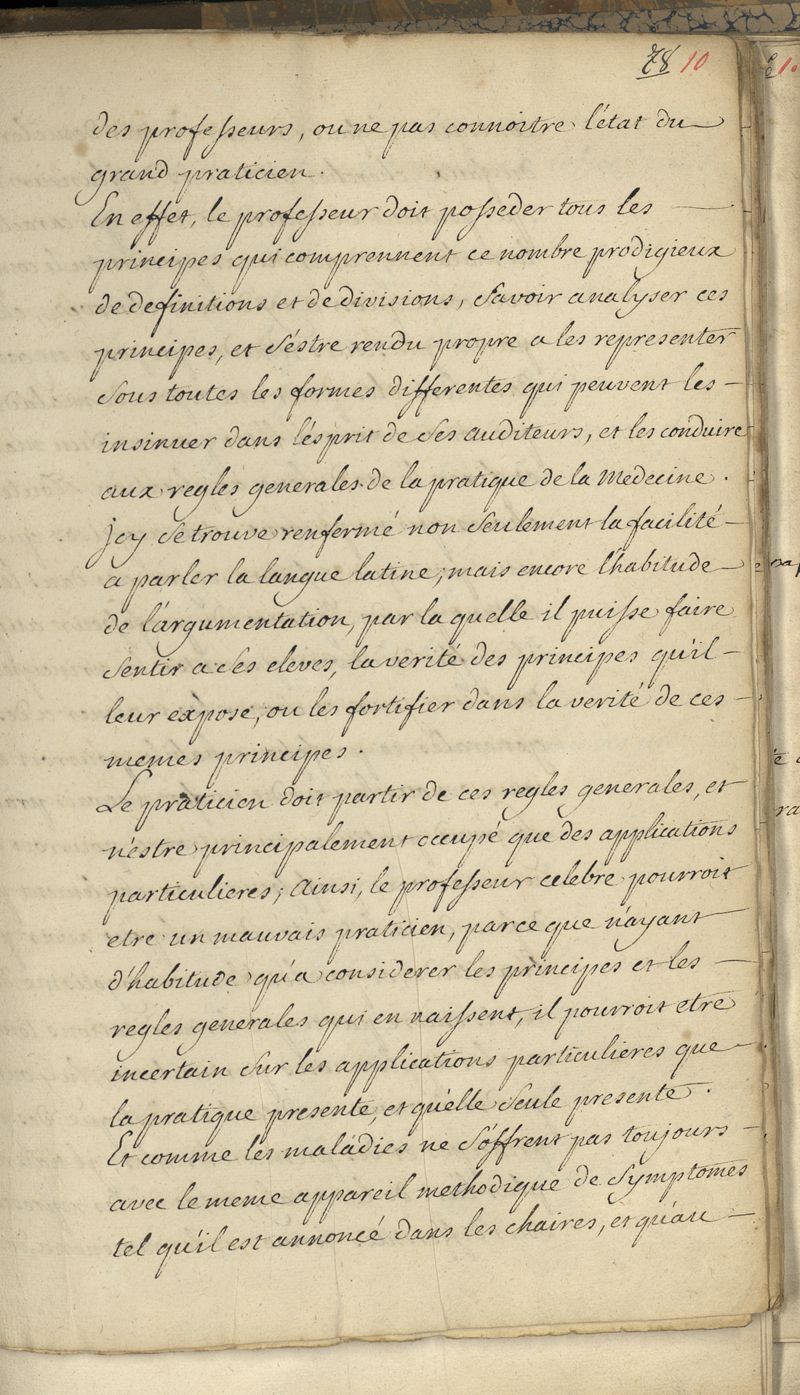 78 10
des professeurs, ou ne pas connoitre l'état du
grand praticien.
En effet, le professeur doit posseder tous les
principes qui comprennent ce nombre prodigieux
de definitions et de divisions, Savoir analyser ces
principes, et s'éstre rendu propre a les representer
Sous toutes les formes differentes qui peuvent les
insinuer dans l'ésprit de Ses auditeurs, et les conduire
aux regles generales de la pratique de la Medecine.
Jcy Se trouve renfermé non Seulement la facilité
a parler la langue latine; mais encore l'habitude
de l'argumentation, par la quelle il puisse faire
Sentir a Ses eleves, la verité des principes qu'il
leur expose, ou les fortifier dans la verité de ces
memes principes.
Le praticien doit partir de ces regles generales, et
n'éstre principalement occupé que des applications
particulieres; Ainsi, le professeur celebre pourroit
etre un mauvais praticien, parce que n'ayant
d'habitude qu'a considerer les principes et les
regles generales qui en naissent, il pourroit etre
incertain Sur les applications particulieres que
la pratique presente, et qu'elle Seule presente.
Et comme les maladies ne S'offrent pas toujours
avec le meme appareil methodique de Symptomes
tel qu'il est annoncé dans les chaires, et qu'au